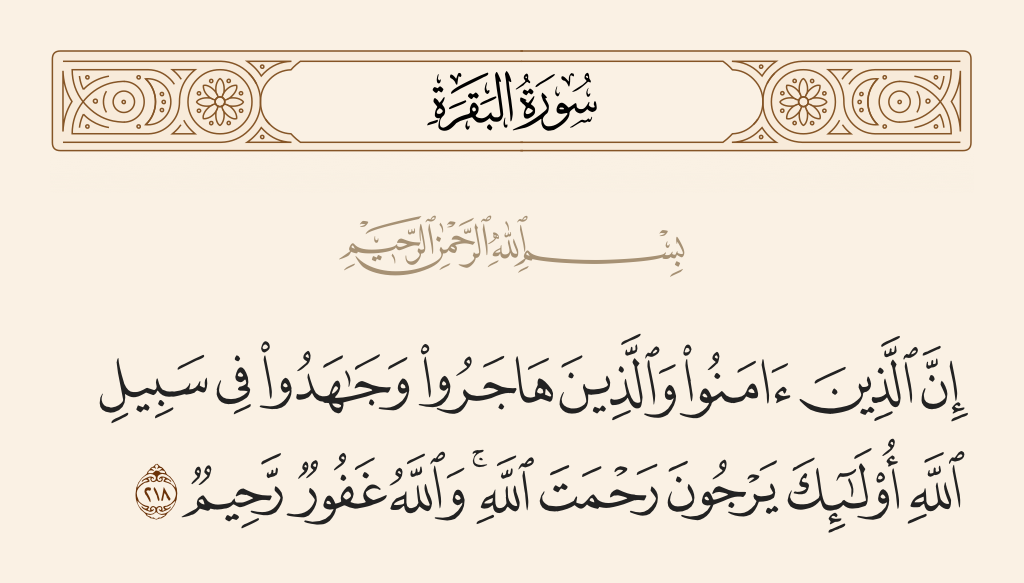 سُورَةُ البَقَرَةِ
بِسْمِ ٱللَّهِ ٱلرَّحْمَٰنِ ٱلرَّحِيمِ
إِنَّ ٱلَّذِينَ ءَامَنُوا۟ وَٱلَّذِينَ هَاجَرُوا۟ وَجَٰهَدُوا۟ فِى سَبِيلِ
ٱللَّهِ أُو۟لَٰٓئِكَ يَرْجُونَ رَحْمَتَ ٱللَّهِ ۚ وَٱللَّهُ غَفُورٌ رَّحِيمٌ ٢١٨